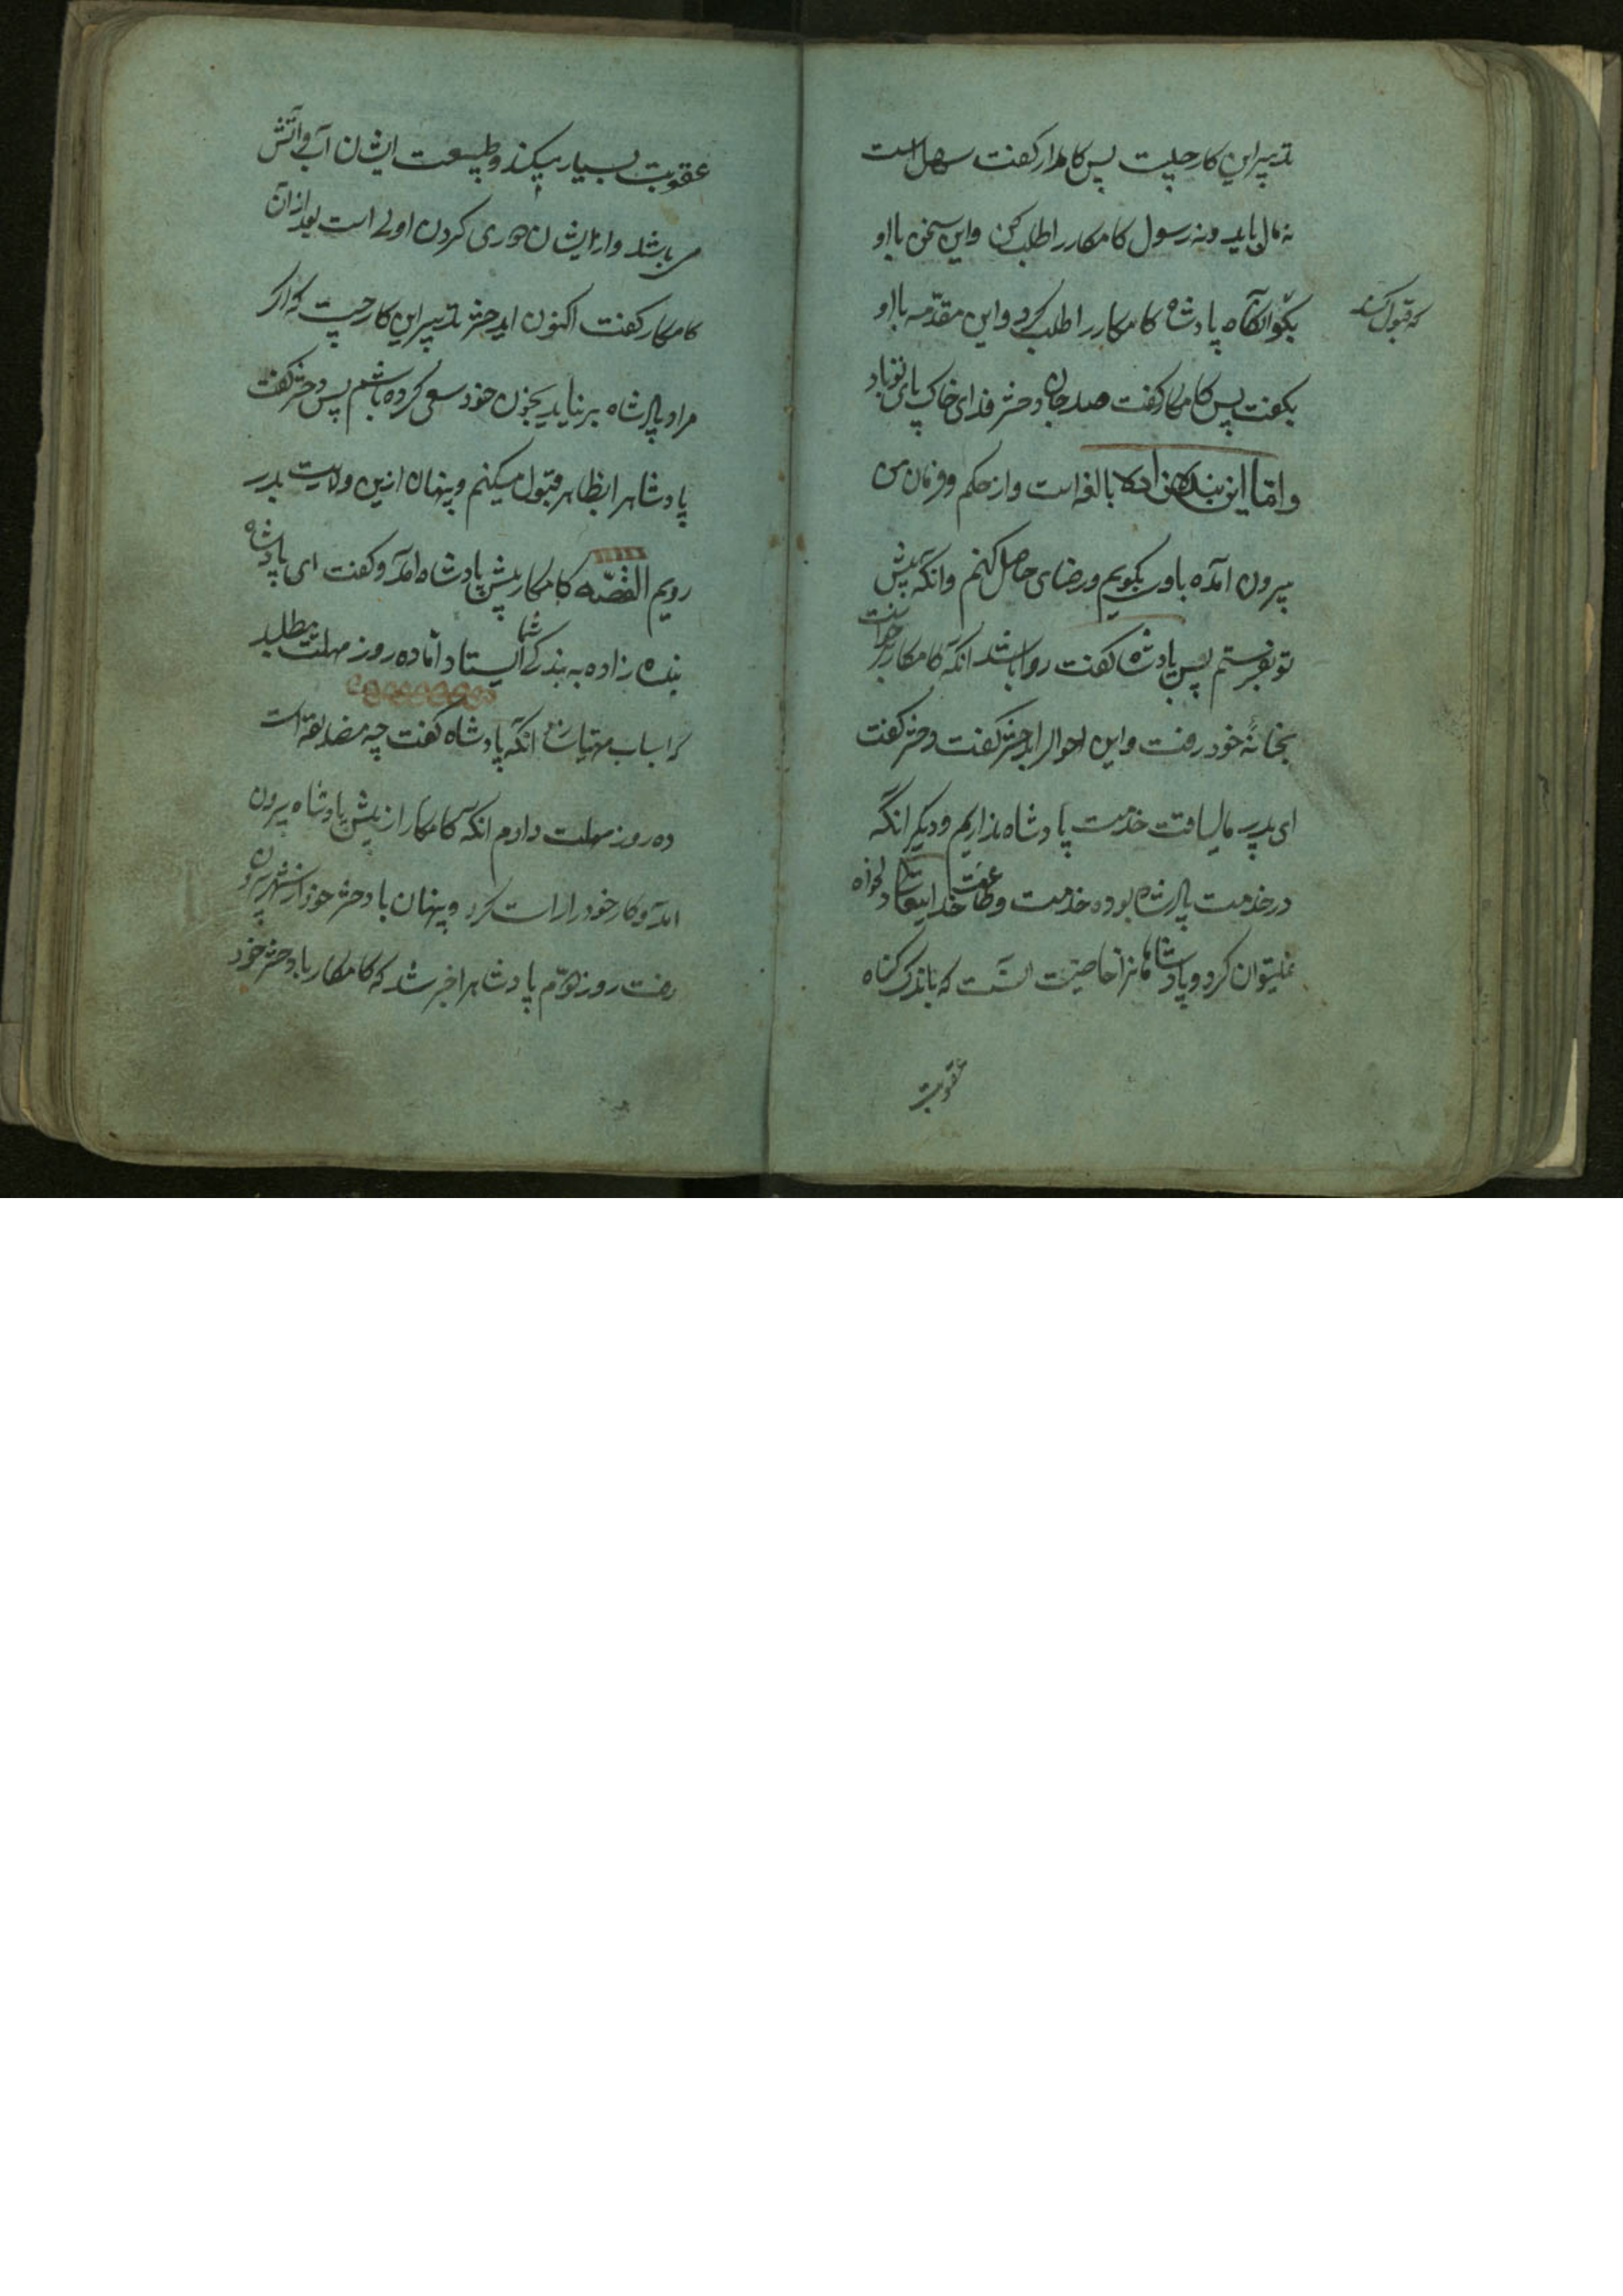 تدبیر این کار چیست پس کامدار کفت سهل است
نه مال باید ونه رسول کامکار را طلب کن واین سخن با او
بکو آنکاه پادشاه کامکار را طلب کرد واین مقدمه با او
که قبول کند
بکفت پس کامکار کفت صد جان دختر فدای خاک پای تو باد
واما این بنده بالغه است واز حکم وفرمان من
بیرون آمده باو بکویم ورضای حاصل کنم وانکه پیش
تو بفرستم پس پادشاه کفت روا باشد انکه کامکار برخواست
بخانهٔ خود رفت واین احوال را بدختر کفت دختر کفت
ای پدر ما لیاقت خدمت پادشاه نداریم ودیکر انکه
در خدمت پادشاه بوده خدمت وطاعت خدایتعالی دلخواه
نمیتوان کرد وپادشاهانرا خاصیت آنست که باندک کناه
عقوبت
عقوبت بسیار میکند وطبیعت ایشان آب وآتش
می باشد واز ایشان دوری کردن اولی است بعد از آن
کامکار کفت اکنون ایدختر تدبیر این کار چیست که اکر
مراد پادشاه بر نیاید بخون خود سعی کرده باشم پس دختر کفت
پادشاهرا بظاهر قبول میکنم وپنهان ازین ولایت بدر
رویم القصه کامکار پیش پادشاه آمد وکفت ای پادشاه
بنده زاده به بندکی شما ایستاد اما ده روز مهلت میطلبد
که اسباب مهیا سازد انکه پادشاه کفت چه مضایقه است
ده روز مهلت دادم انکه کامکار از پیش پادشاه بیرون
آمد وکار خود را راست کرد وپنهان با دختر خود از شهر بیرون
رفت روز دهم پادشاهرا خبر شد که کامکار با دختر خود